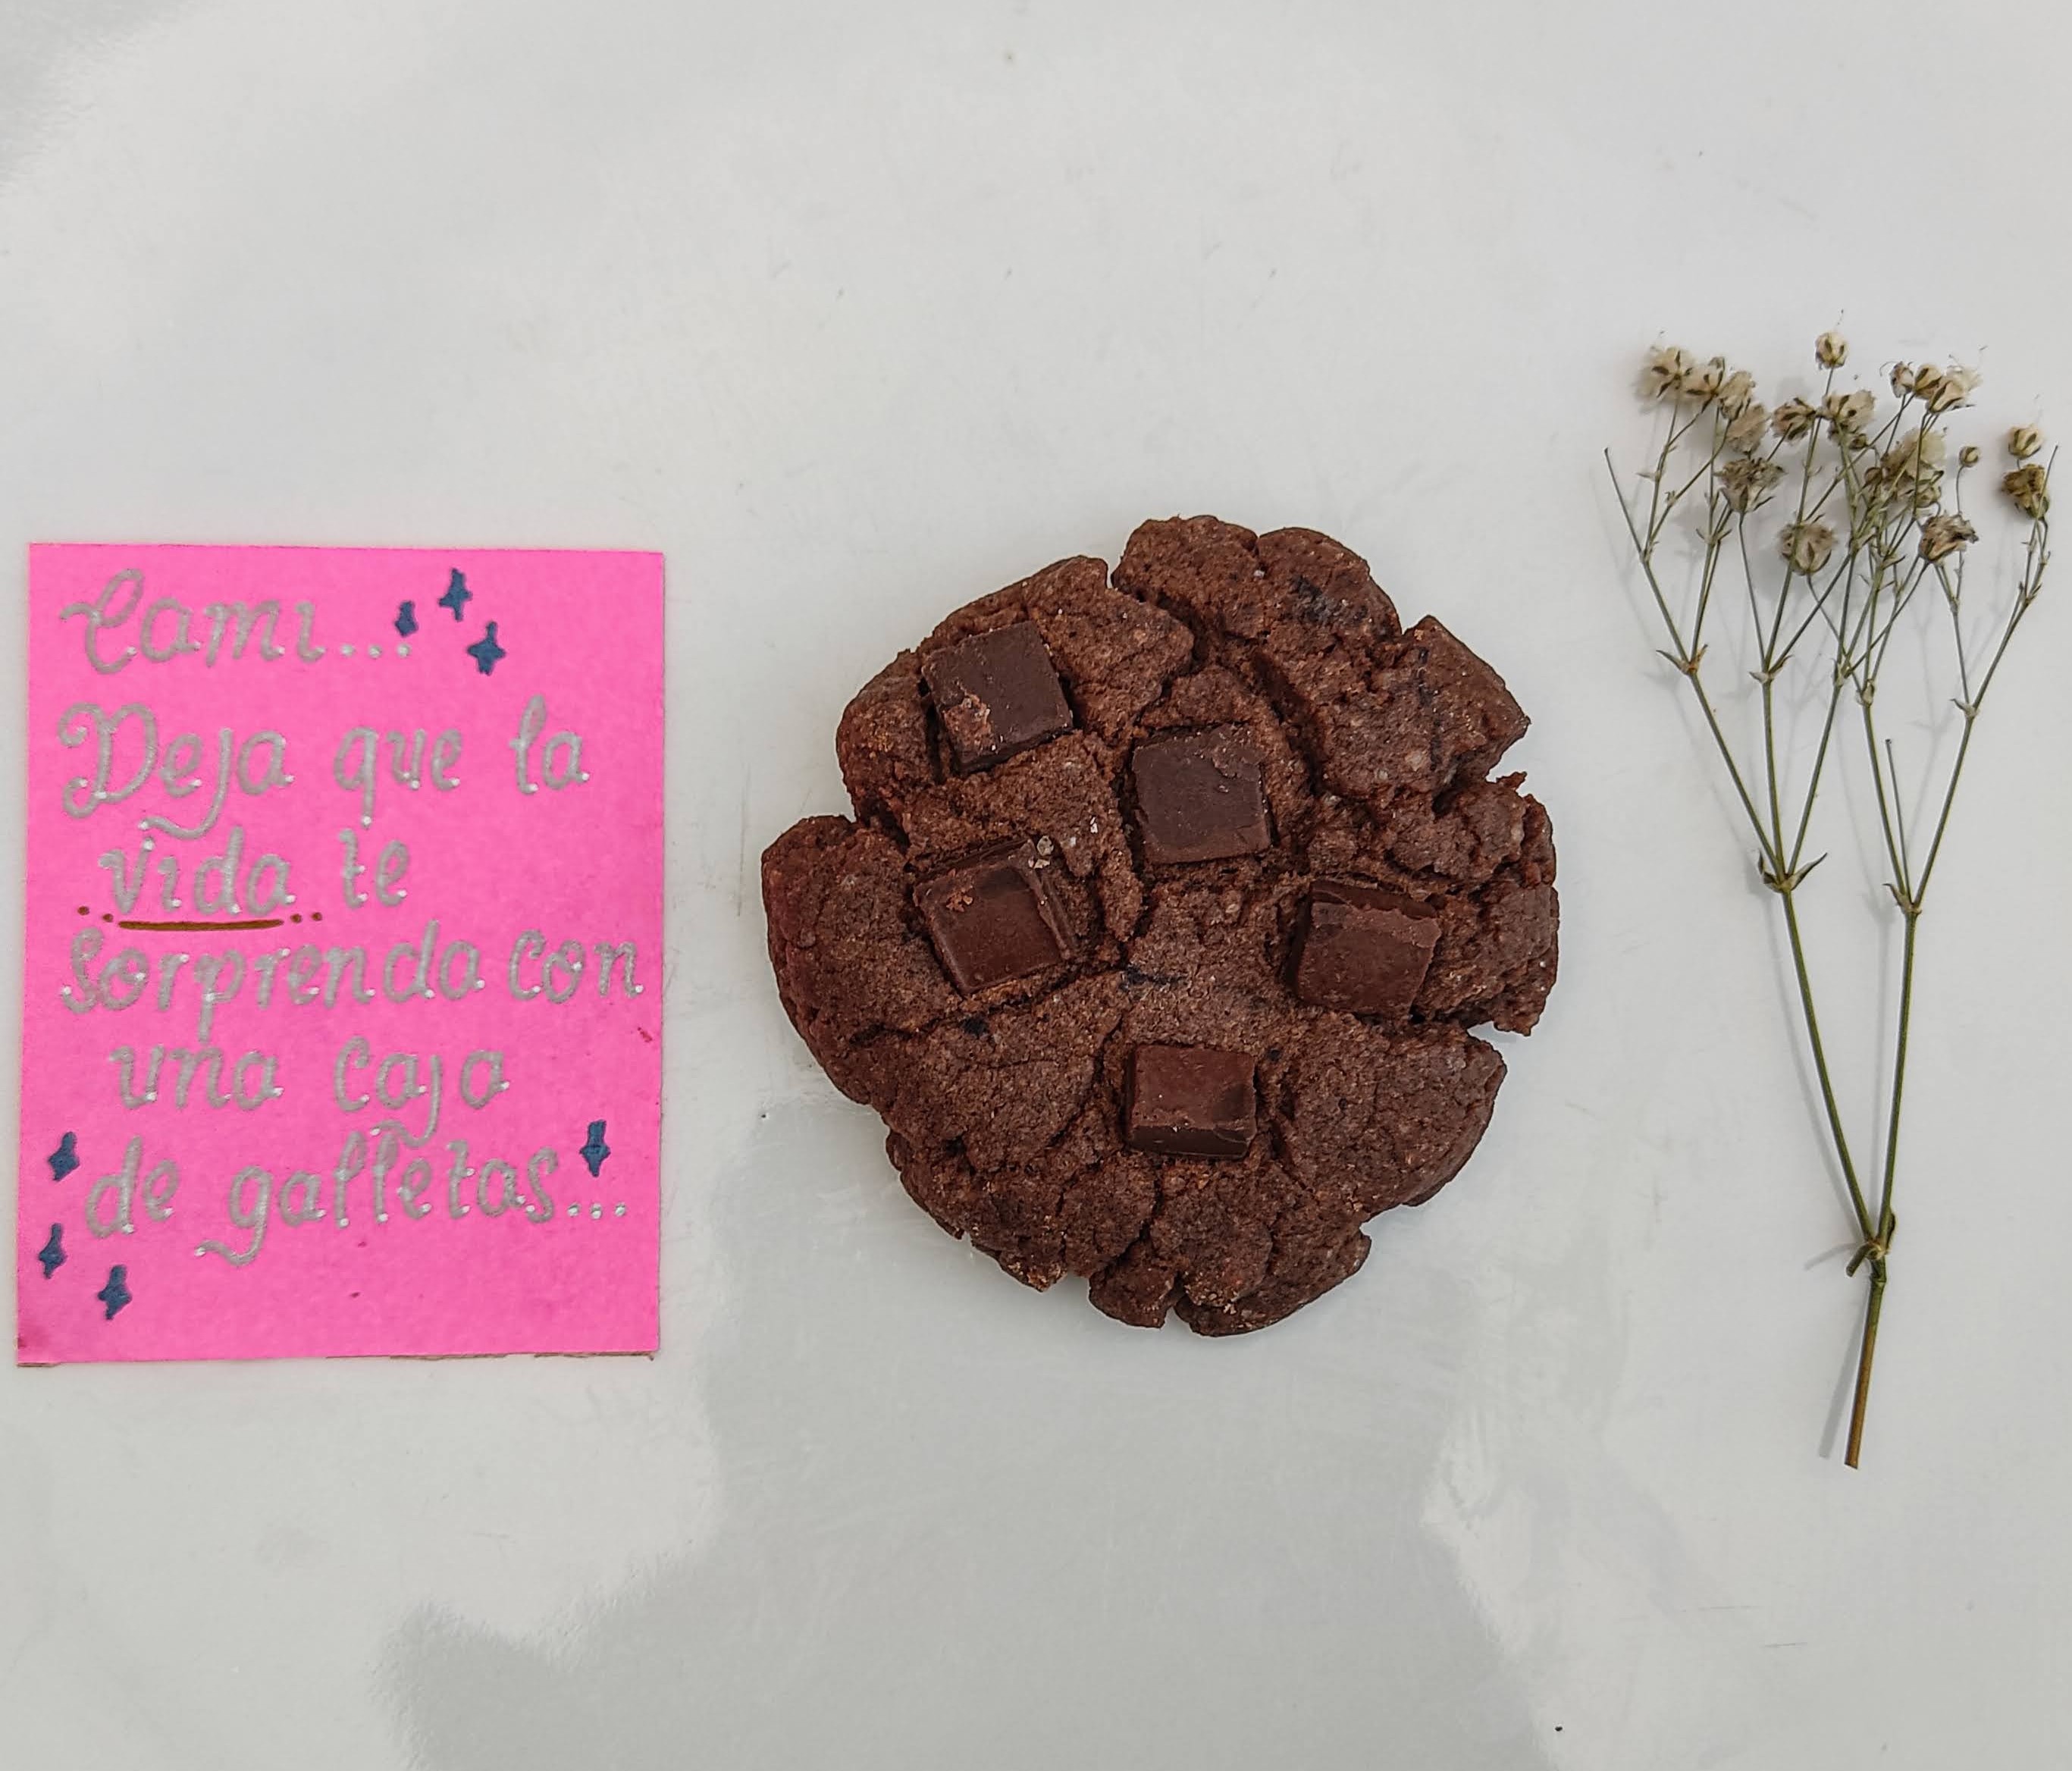 Cami...
Deja que la
vida te
sorprenda con
una caja
de galletas...